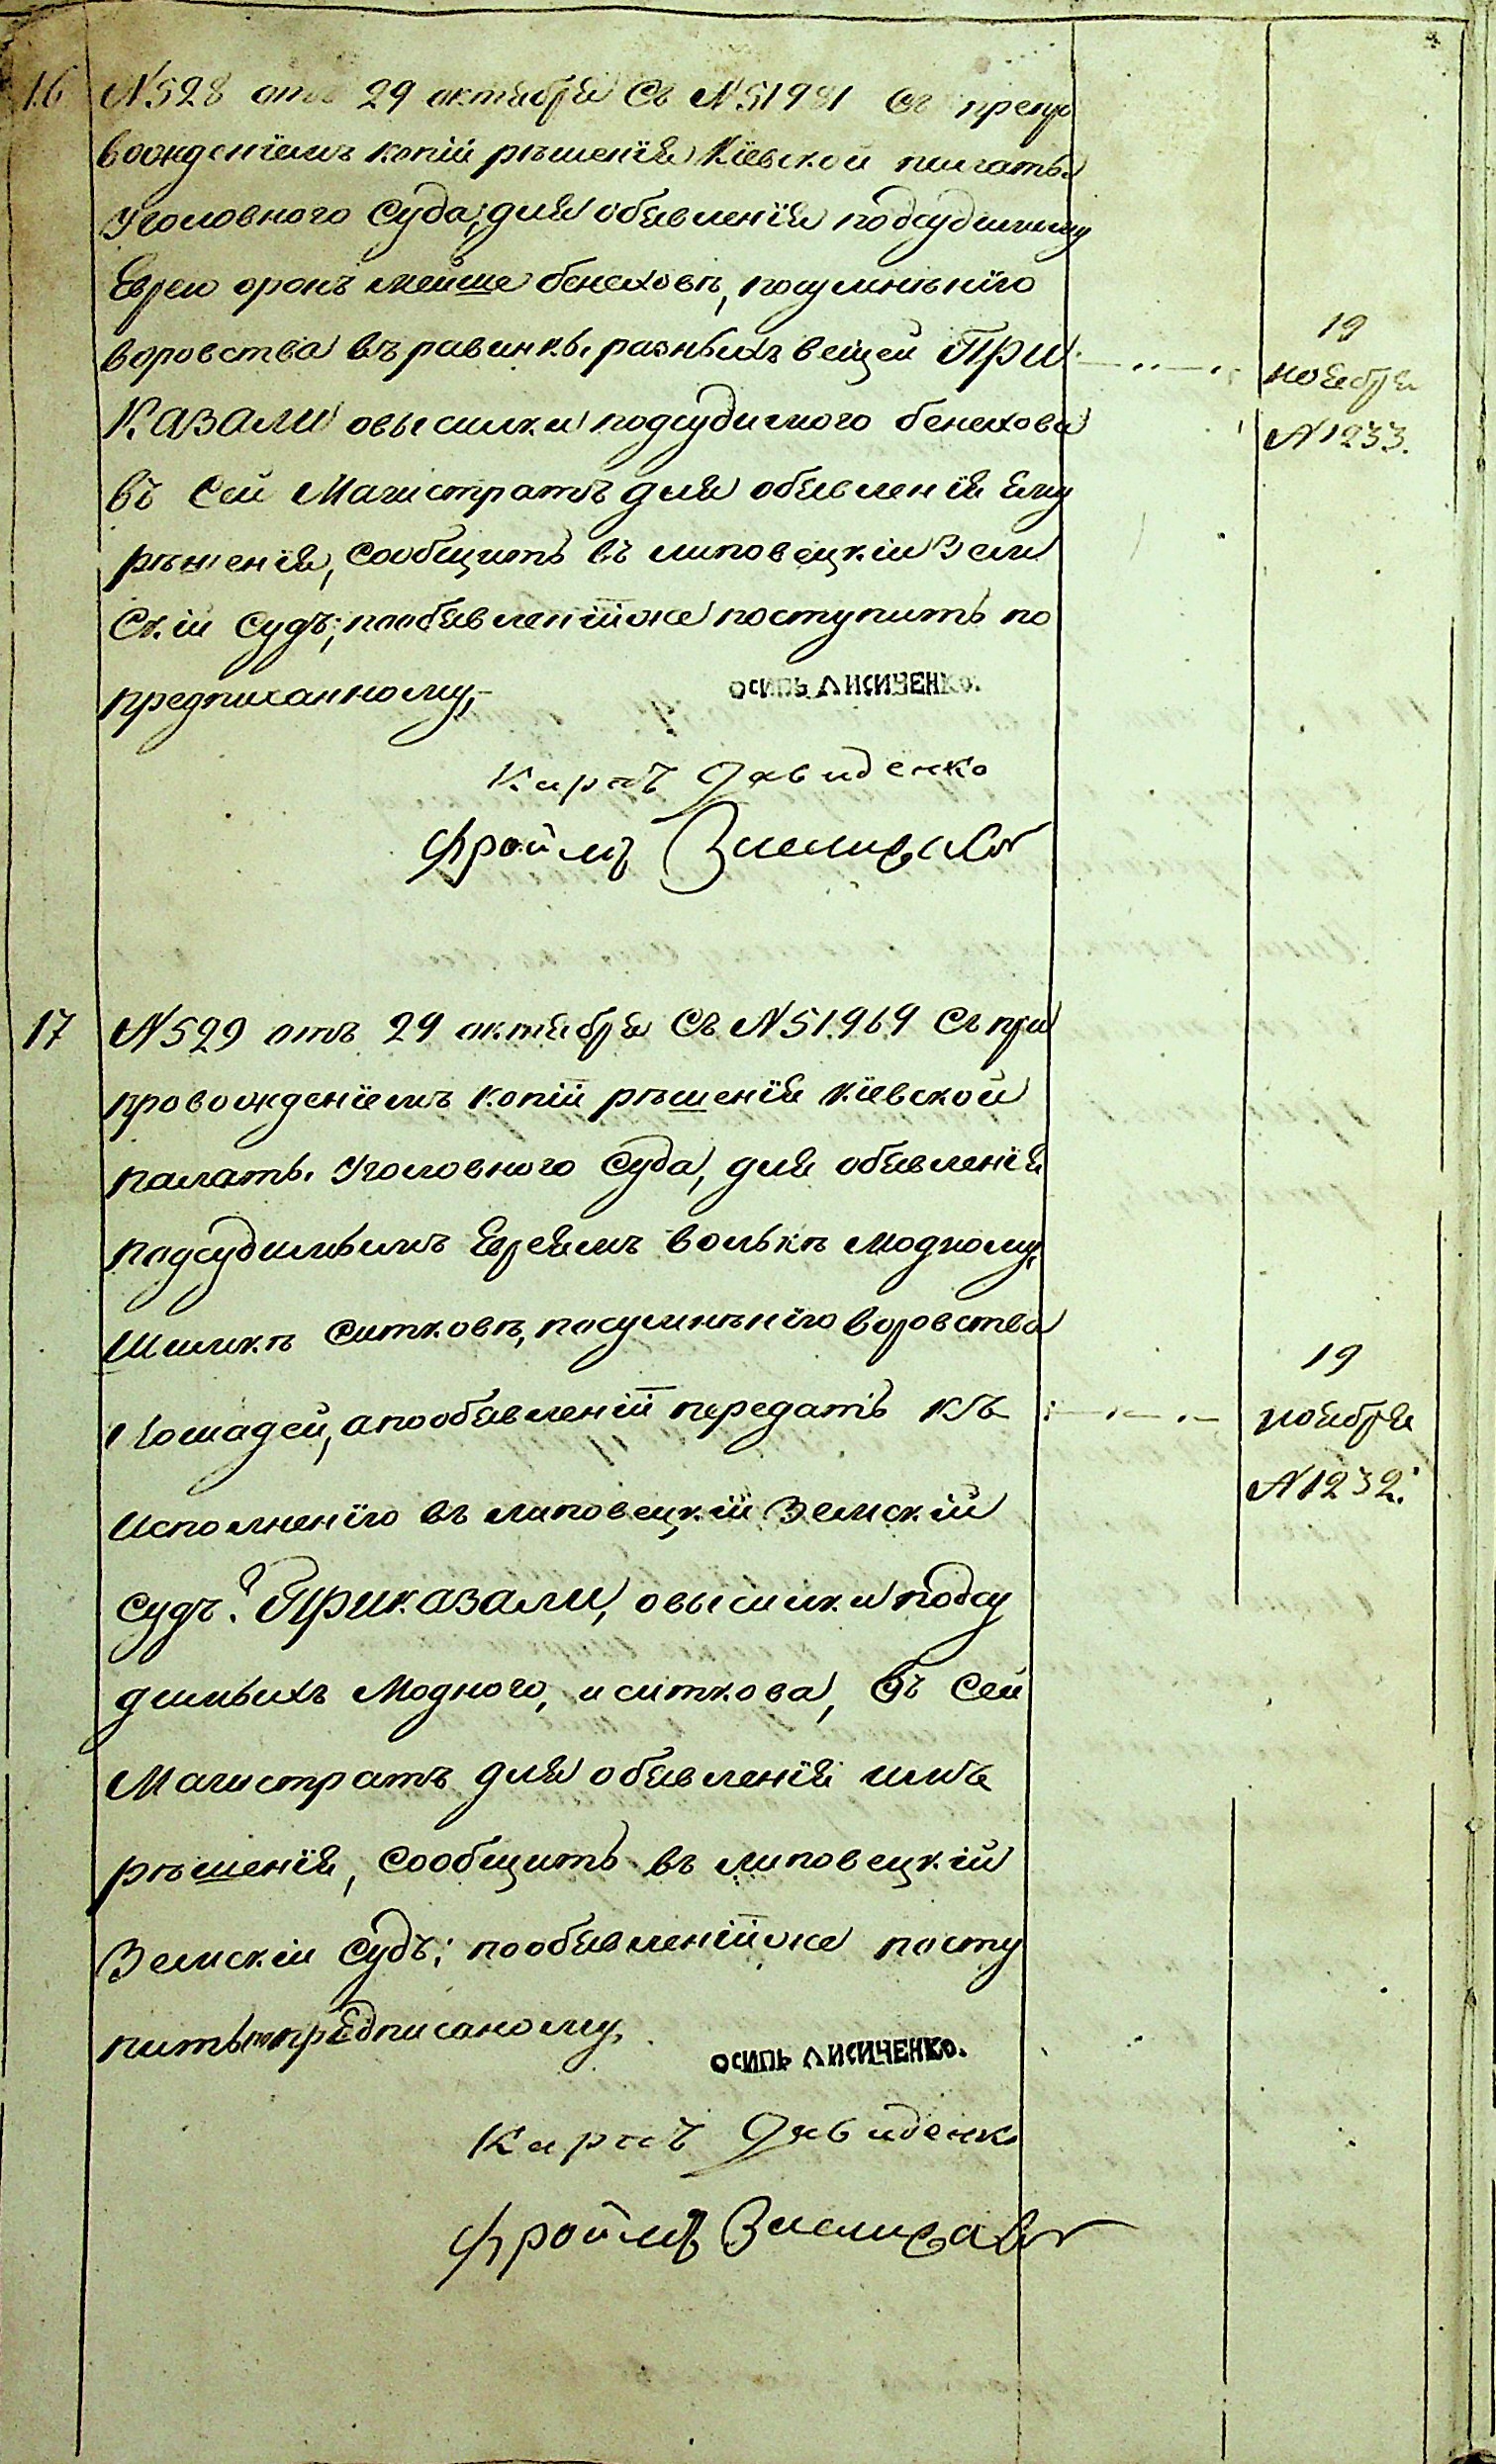 16 №528 отъ 29 октября съ №51981 съ препро
вожденіемъ копій рѣшенія Кіевской палаты
Уголовного Суда, для объявленія подсудимому
Еврею оронъ мейше бенехову, посумнѣнію
воровства въ равинкы разныхъ вещей При
казали овысилки подсудимого бенехова
въ Сей Магистратъ для объявленія ему
рѣшенія, сообщить въ липовецкій Зем
скій судъ; пообъявленіи же поступить по
предписанному,-
19
ноября
№1233.
осипь Лисиченко.
Карпъ Давиденко
Фроимъ
17 №529 отъ 29 октября съ №51969 съ при
провожденіемъ копій рѣшенія кіевской
палаты Уголовного Суда, для объявленія
подсудимымъ Евреямъ волькѣ модному,
Шмилкѣ ситковѣ, посумнѣнію воровства
лошадей, апообъявленіи передать къ
исполненію въ липовецкій Земскій
судъ. Приказали, овысилки подсу
димыхъ Модного, и ситкова, въ Сей
Магистратъ для объявленія имъ
рѣшенія, сообщить въ липовецкій
Земскій судъ; пообъявленіи же посту
пить по предписаному,
19
ноября
№1232.
осипь Лисиченко.
Карпъ Давиденко
Фроимъ